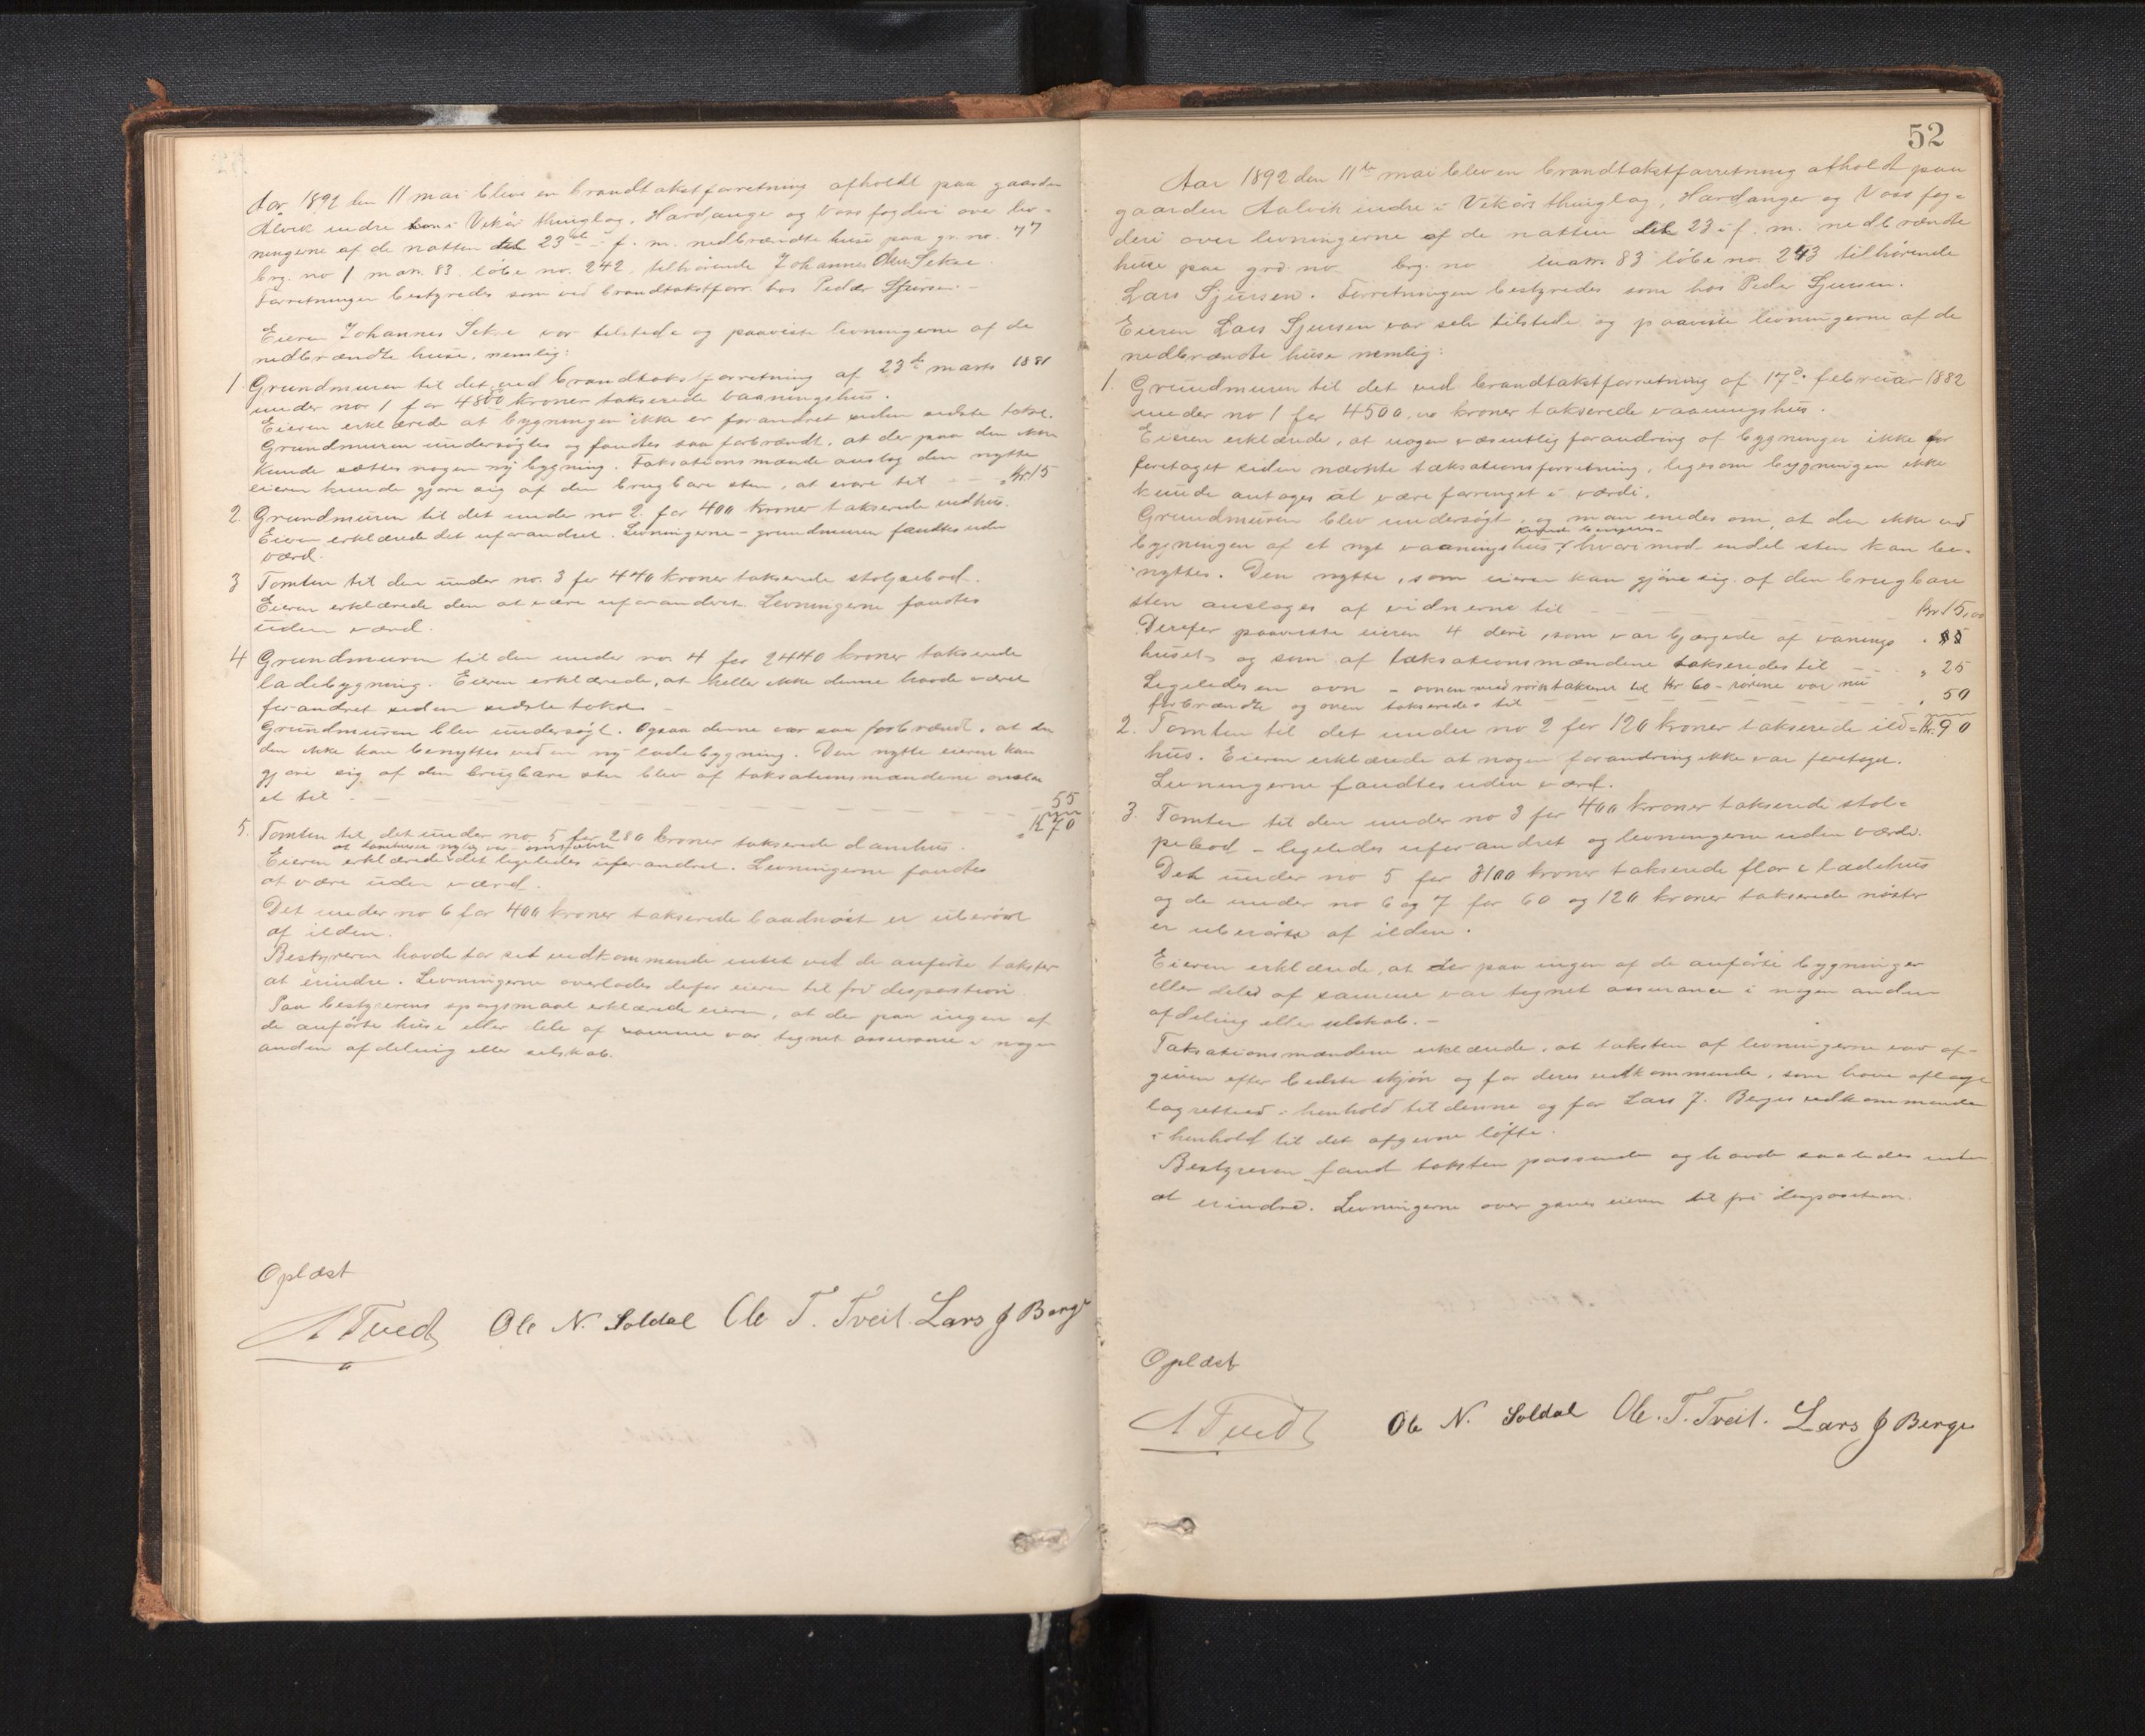 Aar 1892 den 11 mai blev en brandtakstforretning afholdt paa gaarden
Alvik indre i Vikör thinglag, Hardanger og Voss fogderi over lev-
ningerne af de natten til 23de f. m. nedbrændte huse paa gr. no. 77
brg. no 1 matr. 83 löbe no. 242 tilhörende Johannes Olsen Sekse.
Forretningen bestyredes som ved brandtakstforr. hos Peder Sjursen. -
Eieren Johannes Sekse var tilstede og paaviste levningerne af de
nedbrændte huse, nemlig:
1. Grundmuren til det ved brandtakstforretning af 23de marts 1881
under no 1 for 4800 kroner takserede vaaningshus.
Eieren erklærede at bygningen ikke er forandret siden sidste takst.
Grundmuren undersögtes og fandtes saa forbrændt, at der paa den ikke
kunde sættes nogen ny bygning. Taksationsmænde anslog den nytte
eieren kunde gjöre sig af den brugbare sten, at svare til - - " Kr. 15
2. Grundmuren til det under no 2 for 400 kroner takserede ildhus.
Eieren erklærede det uforandret. Levningerne - grundmuren fandtes uden
værd.
3 Tomten til den under no. 3 for 440 kroner takserede stolpebod.
Eieren erklærede den at være uforandret. Levningerne fandtes
uden værd.
4 Grundmuren til den under no. 4 for 2440 kroner takserede
ladebygning. Eieren erklærede, at heller ikke denne havde været
forandret siden sidste takst -
Grundmuren blev undersögt. Ogsaa denne var saa forbrændt, at den
den ikke kan benyttes ved en ny ladebygning. Den nytte eieren kan
gjöre sig af den brugbare sten blev af taksationsmændene anslaa
et til - - - - - - 55
" K 70
5. Tomten til det under no 5 for 280 kroner takserede damhus.
Eieren erklærede det ligeledes uforandret. Levningerne fandtes
at være uden værd.
Det under no 6 for 400 kroner takserede baadnöst er uberört
af ilden.
Bestyreren havde for sit vedkommende intet ved de anförte takster
at erindre. Levningerne overlodes derfor eieren til fri disposition.
Paa bestyrerens spörgsmaal erklærede eieren, at der paa ingen af
de anförte huse eller dele af samme var tegnet assurance i nogen
anden afdeling eller selskab.
Oplæst
A Tved Ole N. Soldal Ole T. Tveit. Lars J Berge
52
Aar 1892 den 11te mai blev en brandtakstforretning afholdt paa
gaarden Aalvik indre i Vikörs thinglag, Hardanger og Voss fog-
deri over levningerne af de natten til 23 i f. m. nedbrændte
huse paa grd. no brg. no matr. 83 löbe no. 243 tilhörende
Lars Sjursen. Forretningen bestyredes som hos Peder Sjursen.
Eieren Lars Sjursen var selv tilstede og paaviste levningerne af de
nedbrændte huse nemlig:
1. Grundmuren til det ved brandtakstforretning af 17de februar 1882
under no 1 for 4500,00 kroner takserede vaaningshus.
Eieren erklærede, at nogen væsentlig forandring af bygninger ikke er
foretaget siden nævnte taksationsforretning, ligesom bygningen ikke
kunde antages at være forringet i værdi.
Grundmuren blev undersögt, og man enedes om, at den ikke ved
kunde benyttes
bygningen af et nyt vaaningshus, hvorimod endel sten kan be-
nyttes. Den nytte, som eieren kan gjöre sig af den brugbare
sten ansloges af vidnerne til - - - Kr. 15,00
Derefter paaviste eieren 4 döre, som var bjærgede af vanings
huset og som af taksationsmændene takseredes til - - " 25
Ligeledes en ovn - ovnen med rör takseret til Kr 60 - rörene var nu
forbrændte og ovnen takseredes til - - - " 50
Kr. 90
2. Tomten til det under no 2 for 120 kroner takserede ild-
hus. Eieren erklærede at nogen forandring ikke var foretaget.
Levningerne fandtes uden værd.
3. Tomten til den under no 3 for 400 kroner takserede stol-
pebod - ligeledes uforandret og levningerne uden værdi.
Det under no 5 for 3100 kroner takserede flor & ladehus
og de under no 6 og 7 for 60 og 120 kroner takserede nöster
er uberörte af ilden.
Eieren erklærede, at der paa ingen af de anförte bygninger
eller dele af samme var tegnet assurance i nogen anden
afdeling eller selskab. -
Taksationsmændene erklærede, at taksten af levningerne var af-
given efter bedste skjön og for deres vedkommende, som have aflagt
lagretted i henhold til denne og for Lars J. Berges vedkommende
i henhold til det afgivne löfte.
Bestyreren fandt taksten passende og havde saaledes intet
at erindre. Levningerne overgaves eieren til fri disposition.
Oplæst
A Tved Ole N. Soldal Ole. T. Tveit. Lars J Berge